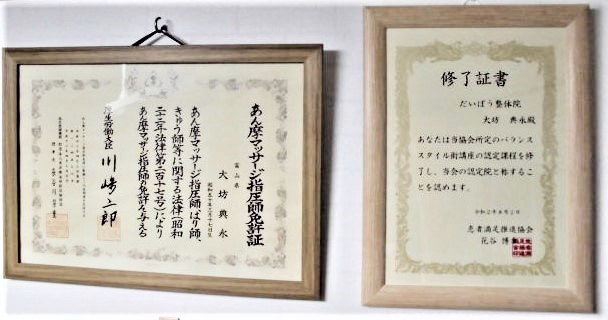 あん摩マッサージ指圧師免許証
富山県
大坊 興永
あん摩マッサージ指圧師、はり師、
きゅう師等に関する法律（昭和
二十二年法律第二百十七号）により
あん摩マッサージ指圧師の免許を与える
厚生労働大臣 川崎二郎
修了証書
だいぼう整体院
大坊 興永殿
あなたは当協会所定のバランス
スタイル術講座の認定課程を修
了し、当会の認定院と称するこ
とを認めます。
患者満足推進協会
花谷 博